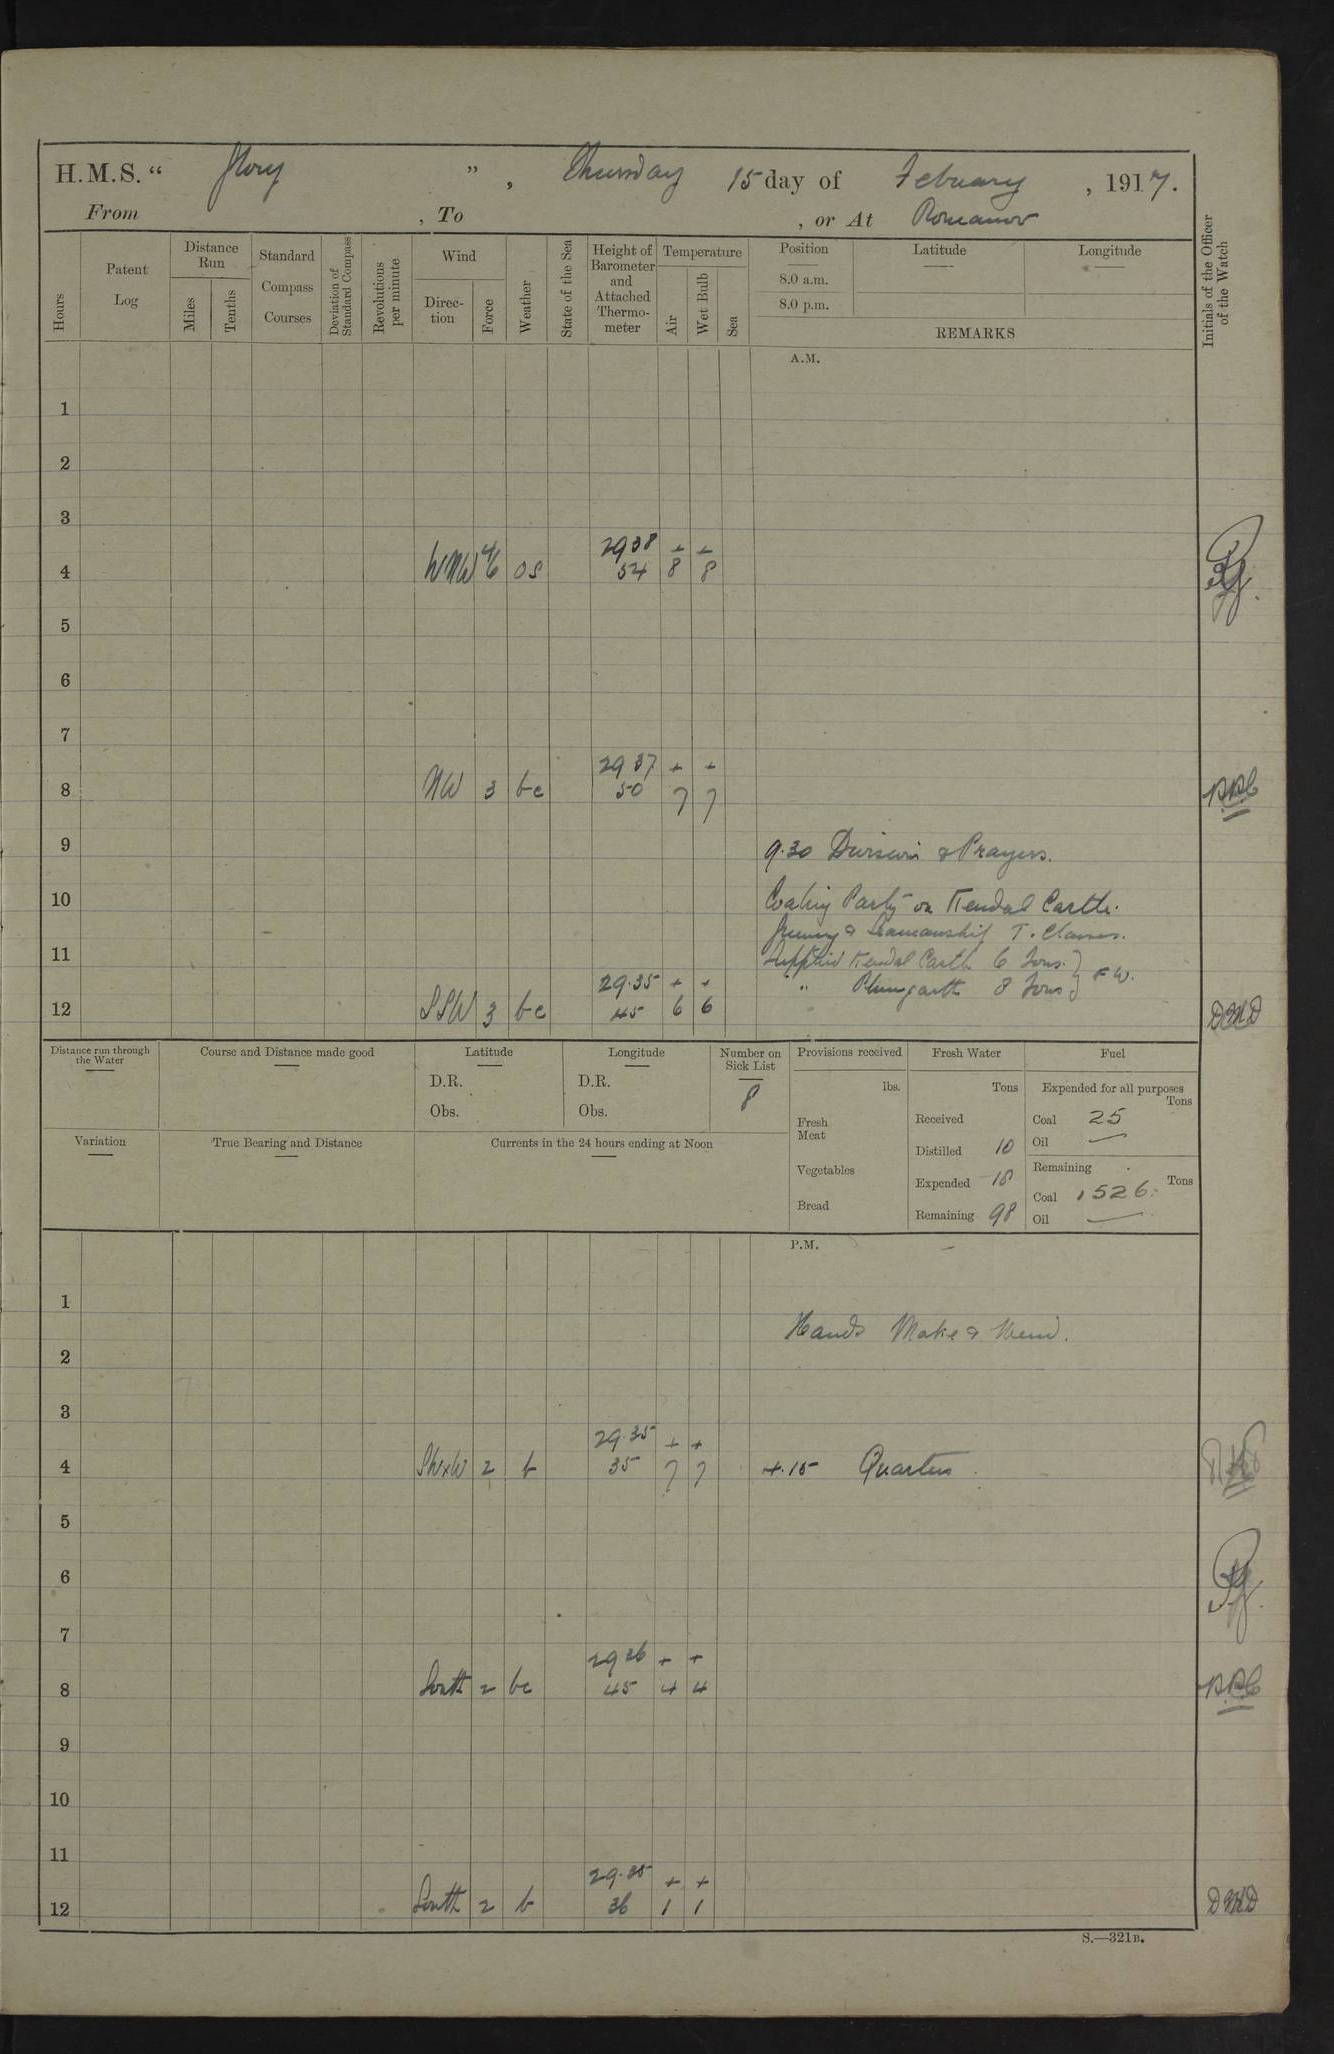 H.M.S. “ Glory ” , Thursday 15 day of Febuary , 1917.
From , To , or At Romanov
Hours
Patent Log
Distance Run
Miles
Tenths
Standard Compass Courses
Deviation of Standard Compass
Revolutions per minute
Wind
Direction
Force
Weather
State of the Sea
Height of Barometer and Attached Thermometer
Temperature
Air
Wet Bulb
Sea
Position
8.0 a.m.
8.0 p.m.
Latitude
Longitude
REMARKS
Initials of the Officer of the Watch
A.M.
1
2
3
29 38 + +
4 WNW 4/6 os 54 8 8
5
6
7
29 37 + +
8 NW 3 bc 50 7 7
9 9.30 Division & Prayers.
10 Coaling Party on Kendal Castle.
Gunnery & Seamanship T. Classes.
11 Supplied Kendal Castle 6 Tons } F W.
29.35 + + " Plumgarth 8 Tons
12 SSW 3 bc 45 6 6 DMD
Distance run through the Water
Course and Distance made good
Latitude
D.R.
Obs.
Longitude
D.R.
Obs.
Number on Sick List
8
Provisions received
lbs.
Fresh Meat
Vegetables
Bread
Fresh Water
Tons
Received
Distilled 10
Expended 18
Remaining 98
Fuel
Expended for all purposes
Tons
Coal 25
Oil —
Remaining
Tons
Coal 1526
Oil —
Variation
True Bearing and Distance
Currents in the 24 hours ending at Noon
P.M.
1
Hands Make & Mend.
2
3
29.35 + +
4 SWxW 2 b 35 7 7 4.15 Quarters
5
6
7
29 26 + +
8 South 2 bc 45 4 4
9
10
11
29.25 + +
12 South 2 b 36 1 1 DMD
S.—321B.